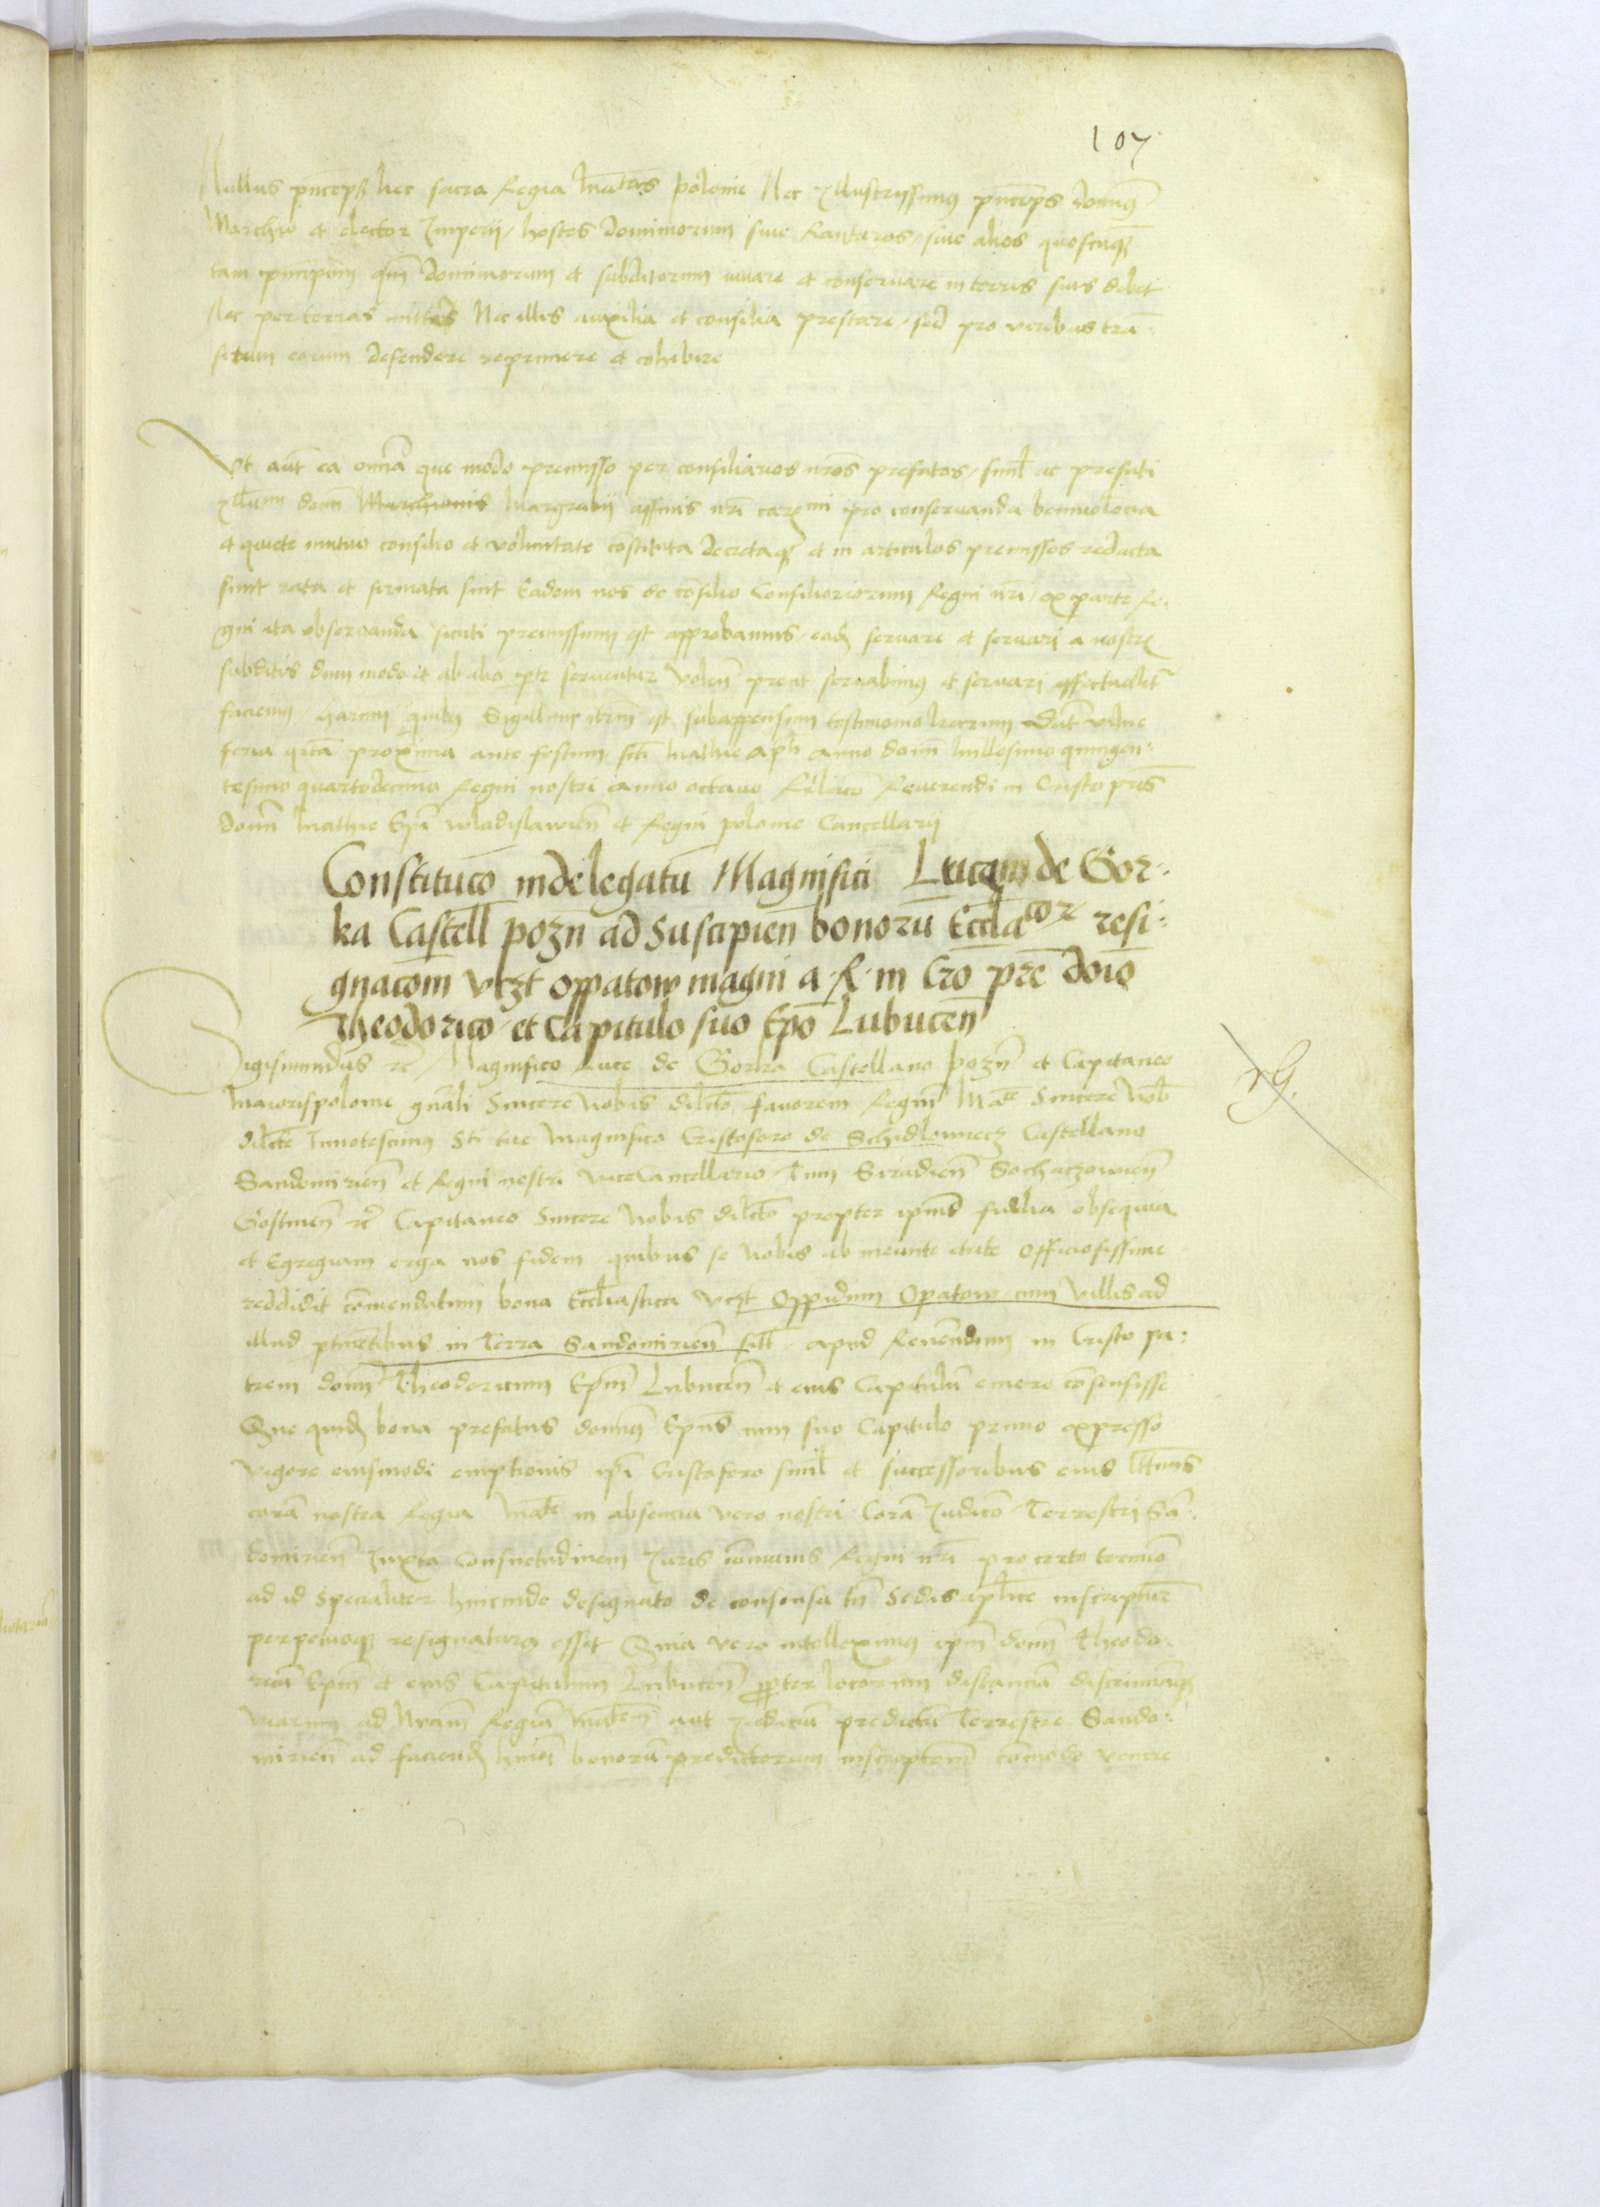 107
Nullus princeps hec sacra Regia Mtas polonie Nec Illustrissimus princeps domus
Marchio et elector Imperii, hostes dominorum sive Raptores, sive alios quoscumq
tam principum qm dominorum et subditorum iuvare et conservare in terris suis debet
Nec per terras mittere Nec illis auxilia et consilia prestare, sed pro viribus tran-
situm eorum defendere reprimere et cohibere
Ut aut ea omia que modo premisso per consiliarios nros prefatos, simil ac prefati
Illumi domi Marchionis Margravii affinis nri carmi pro conservanda benivolencia
et quiete mutuo consilio et voluntate costituta decretaq et in articulos premissos redacta
sunt rata et firmata sint Eadem nos de cosilio Consiliariorum Regni nri, ex parte Re-
gni ita observanda sicuti premissum est approbamus, eadem servare et servari a nostris
subditis dum modo et ab alia pte serventur Volen prout servabimus et servari effectualit
faciemus, harum quibus Sigillum nrm est subappensum testimonio lrarum Dat Vilne
feria qrta proxima ante festum sti Mathie apli anno domi Millesimo quingen-
tesimo quartodecimo Regni nostri anno octavo Relacio Reverendi in Cristo pris
domi Mathie Epi wladislavien et Regni polonie Cancellarii
Constitucio in delegatum Magnifici Lucam de Gor-
ka Castell pozn ad suscipien bonoru Eccla cor resi-
gnacom vczt oppatow magni a R in Cro pre doio
Theodorico et Capitulo suo Epo Lubucen
Sigismundus rc Magnifico Luce de Gorka Castellano pozn et Capitaneo
Maiorispolonie gnali Sincere Nobis dilecto favorem Regium Mce Sincere Nob
dilecte Innotescimus Sti tue Magnifico Cristoforo de Schidlowiecz Castellano
Sandomirien et Regni nostri vicecancellario Tum Siradien Sochaczowien
Gostinen rc Capitaneo Sincere Nobis dilecto propter ipius fidelia obsequia
et Egregiam erga nos fidem quibus se Nobis ab ineunte etate officiosissime
reddidit comendatum bona Eccliastica vczt Oppidum Opatow cum Villis ad
illud ptinetibus in Terra Sandomirien sitt, apud Reverendum in Cristo pa-
trem domi Theodoricum Epm Lubucen et eius Capitulum emere consensisse
Que quidem bona prefatus domus Epus cum suo Capitulo primo expresso
vigore eiusmodi emptionis ipi Cristoforo simil et successoribus eius lttimis
cora nostra Regia Mate in absencia vero nostri Cora Iudicio Terrestri San-
domirien Iuxta Consuetudinem Iuris comunis Regni nri pro certo termio
ad id Specialiter hincinde designato de consensu tn Sedis aplice inscripture
perpetuoq resignaturus esset Quia vero intelleximus ipm domi Theodo-
ricu Epm et eius Capitulum Lubucen propter locorum distancia discriminaq
viarum ad Nram Regia Mtem aut Iudiciu predictu Terrestre Sando-
mirien ad faciend hmoi bonoru predictorum inscriptiom comode venire